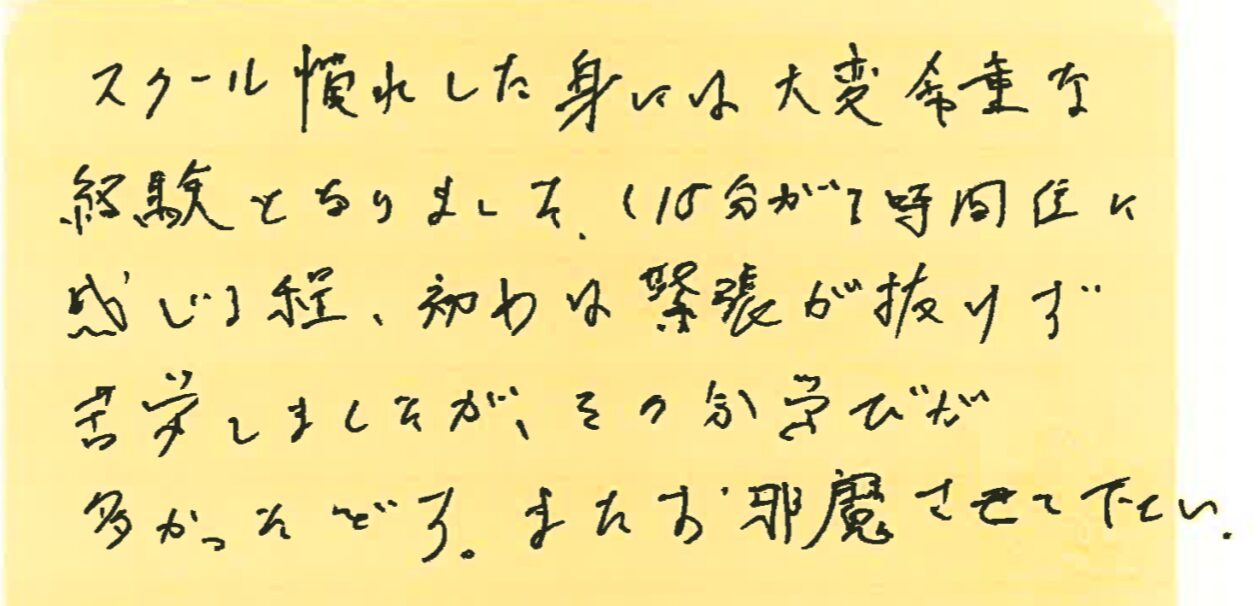 スクール慣れした身には大変希重な
経験となりました。(15分が1時間位に
感じる程、初めは緊張が抜けず
苦労しましたが、その分学びが
多かったです。またお邪魔させて下さい。